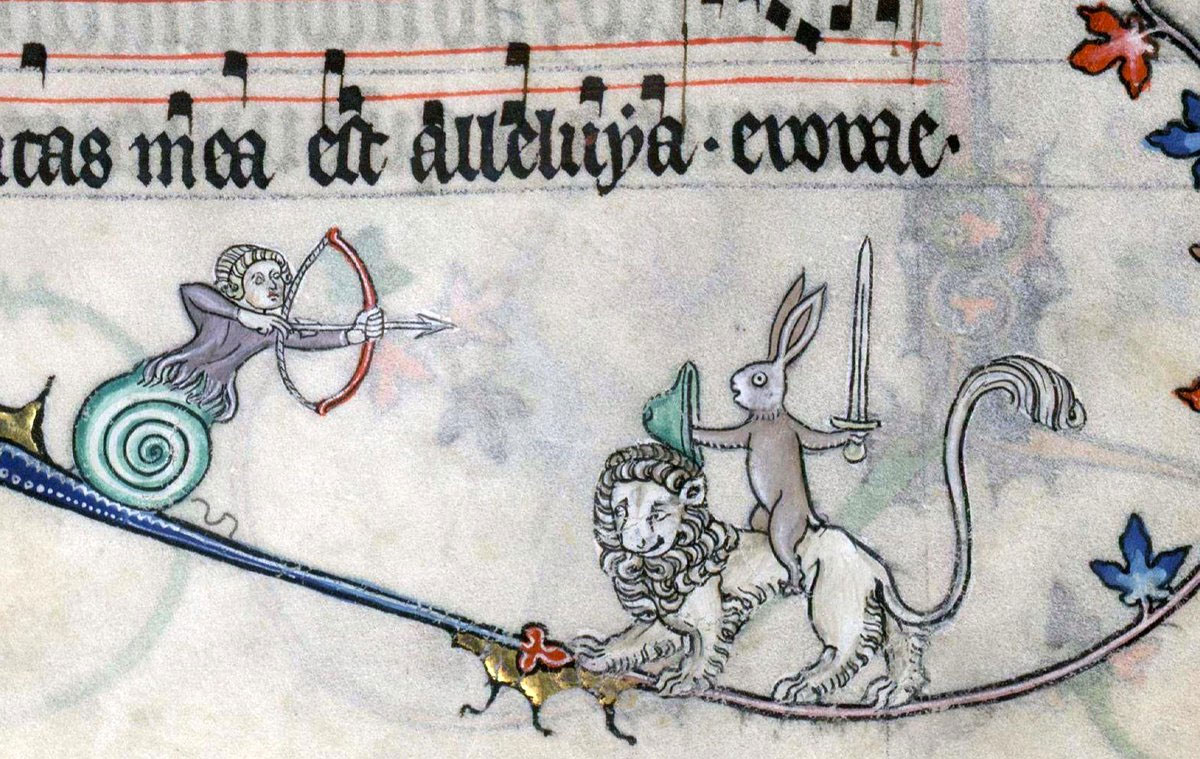 tas mea est alleluẏa · evovae ·